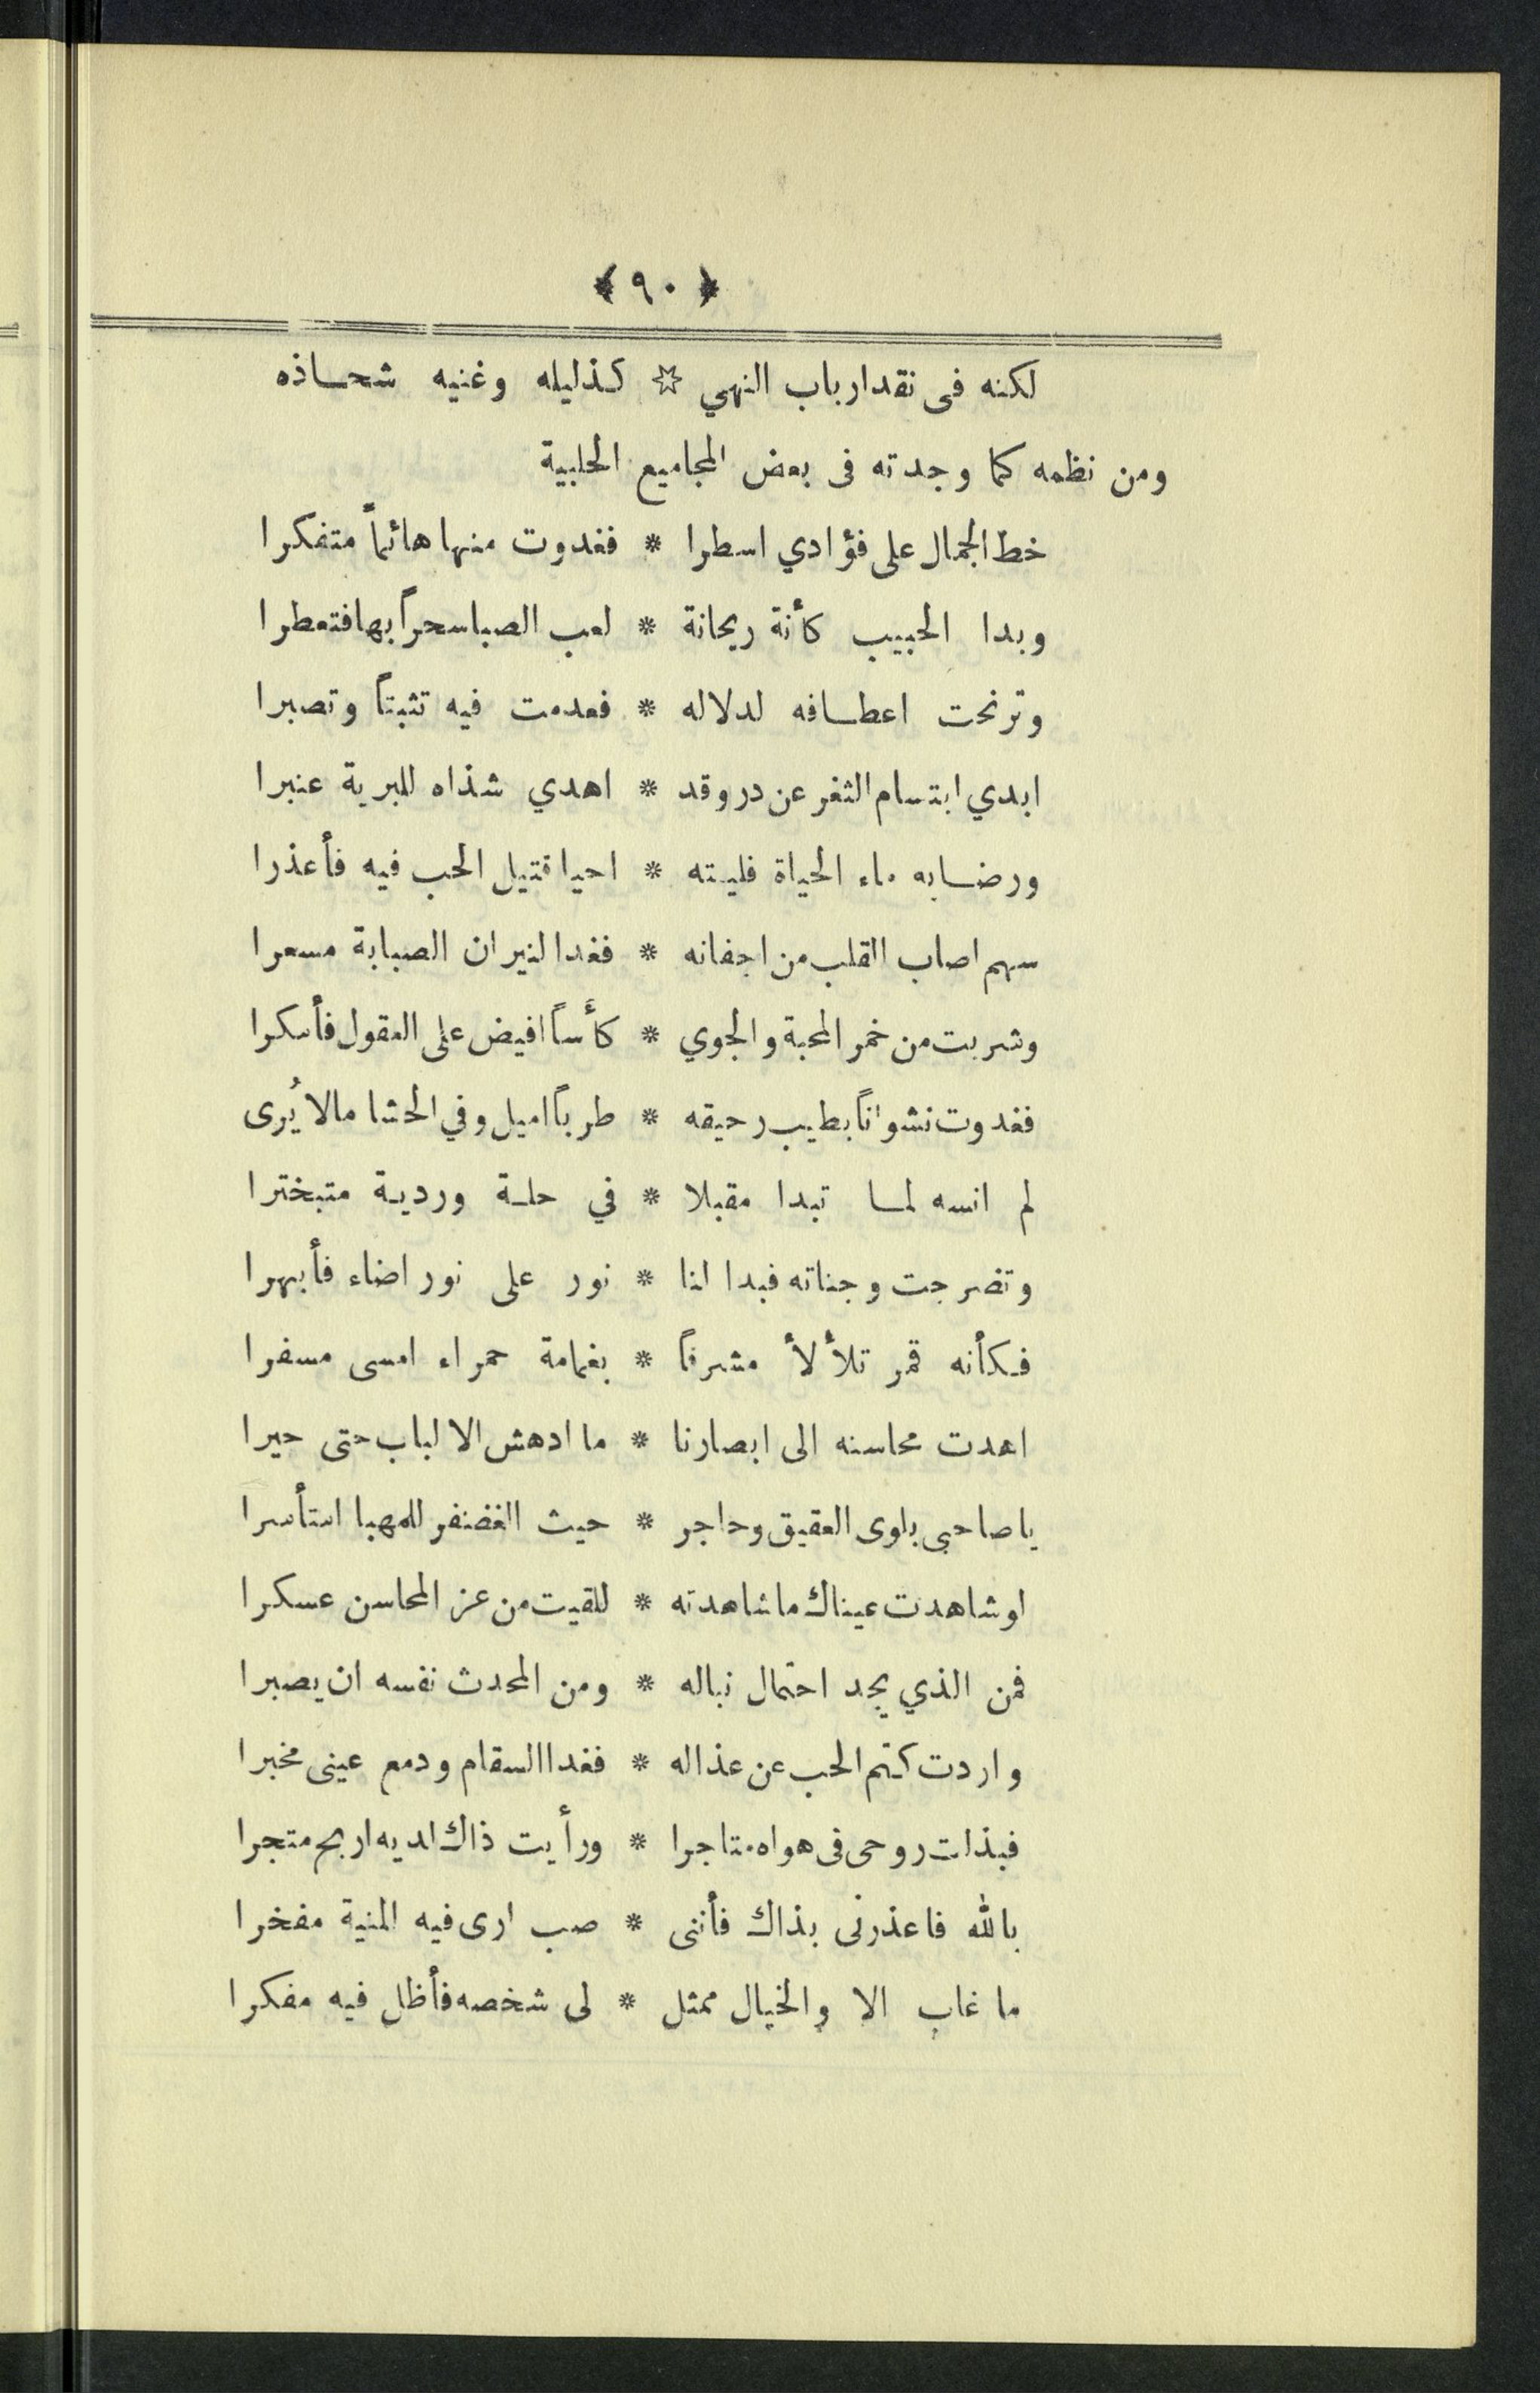 ﴿ ٩٠ ﴾
لكنه فى نقد ارباب النهي ☆ كذليله وغنيه شحاذه
ومن نظمه كما وجدته فى بعض المجاميع الحلبية
خط الجمال على فؤادي اسطرا * فغدوت منها هائماً متفكرا
وبدا الحبيب كأنة ريحانة * لعب الصبا سحراً بها فتعطرا
وترنحت اعطافه لدلاله * فعدمت فيه تثبتاً وتصبرا
ابدي ابتسام الثغر عن در وقد * اهدي شذاه للبرية عنبرا
ورضابه ماء الحياة فليته * احيا قتيل الحب فيه فأعذرا
سهم اصاب القلب من اجفانه * فغدا لنيران الصبابة مسعرا
وشربت من خمر المحبة والجوي * كأساً افيض على العقول فأسكرا
فغدوت نشواناً بطيب رحيقه * طرباً اميل وفي الحشا مالا يُرى
لم انسه لما تبدا مقبلا * في حلة وردية متبخترا
وتضرجت وجناته فبدا لنا * نور على نور اضاء فأبهرا
فكأنه قمر تلألأ مشرقاً * بغمامة حمراء امسى مسفرا
اهدت محاسنه الى ابصارنا * ما ادهش الالباب حتى حيرا
يا صاحبى بلوى العقيق وحاجر * حيث الغضنفر للمهبا استأسرا
لو شاهدت عيناك ما شاهدته * للقيت من عز المحاسن عسكرا
فمن الذي يجد احتمال نباله * ومن المحدث نفسه ان يصبرا
واردت كتم الحب عن عذاله * فغدا السقام ودمع عينى مخبرا
فبذلت روحى فى هواه متاجرا * ورأيت ذاك لديه اربح متجرا
بالله فاعذرنى بذاك فأننى * صب ارى فيه المنية مفخرا
ما غاب الا والخيال ممثل * لى شخصه فأظل فيه مفكرا